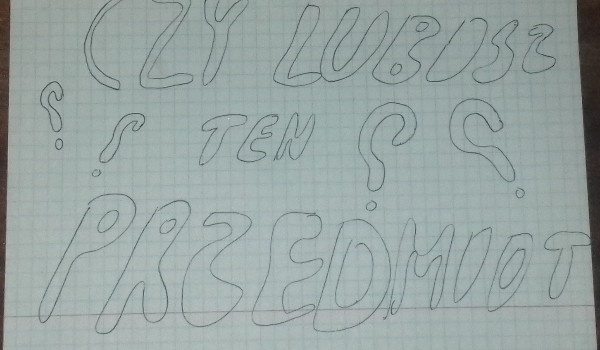 CZY LUBISZ
? ? TEN ? ?
PRZEDMIOT